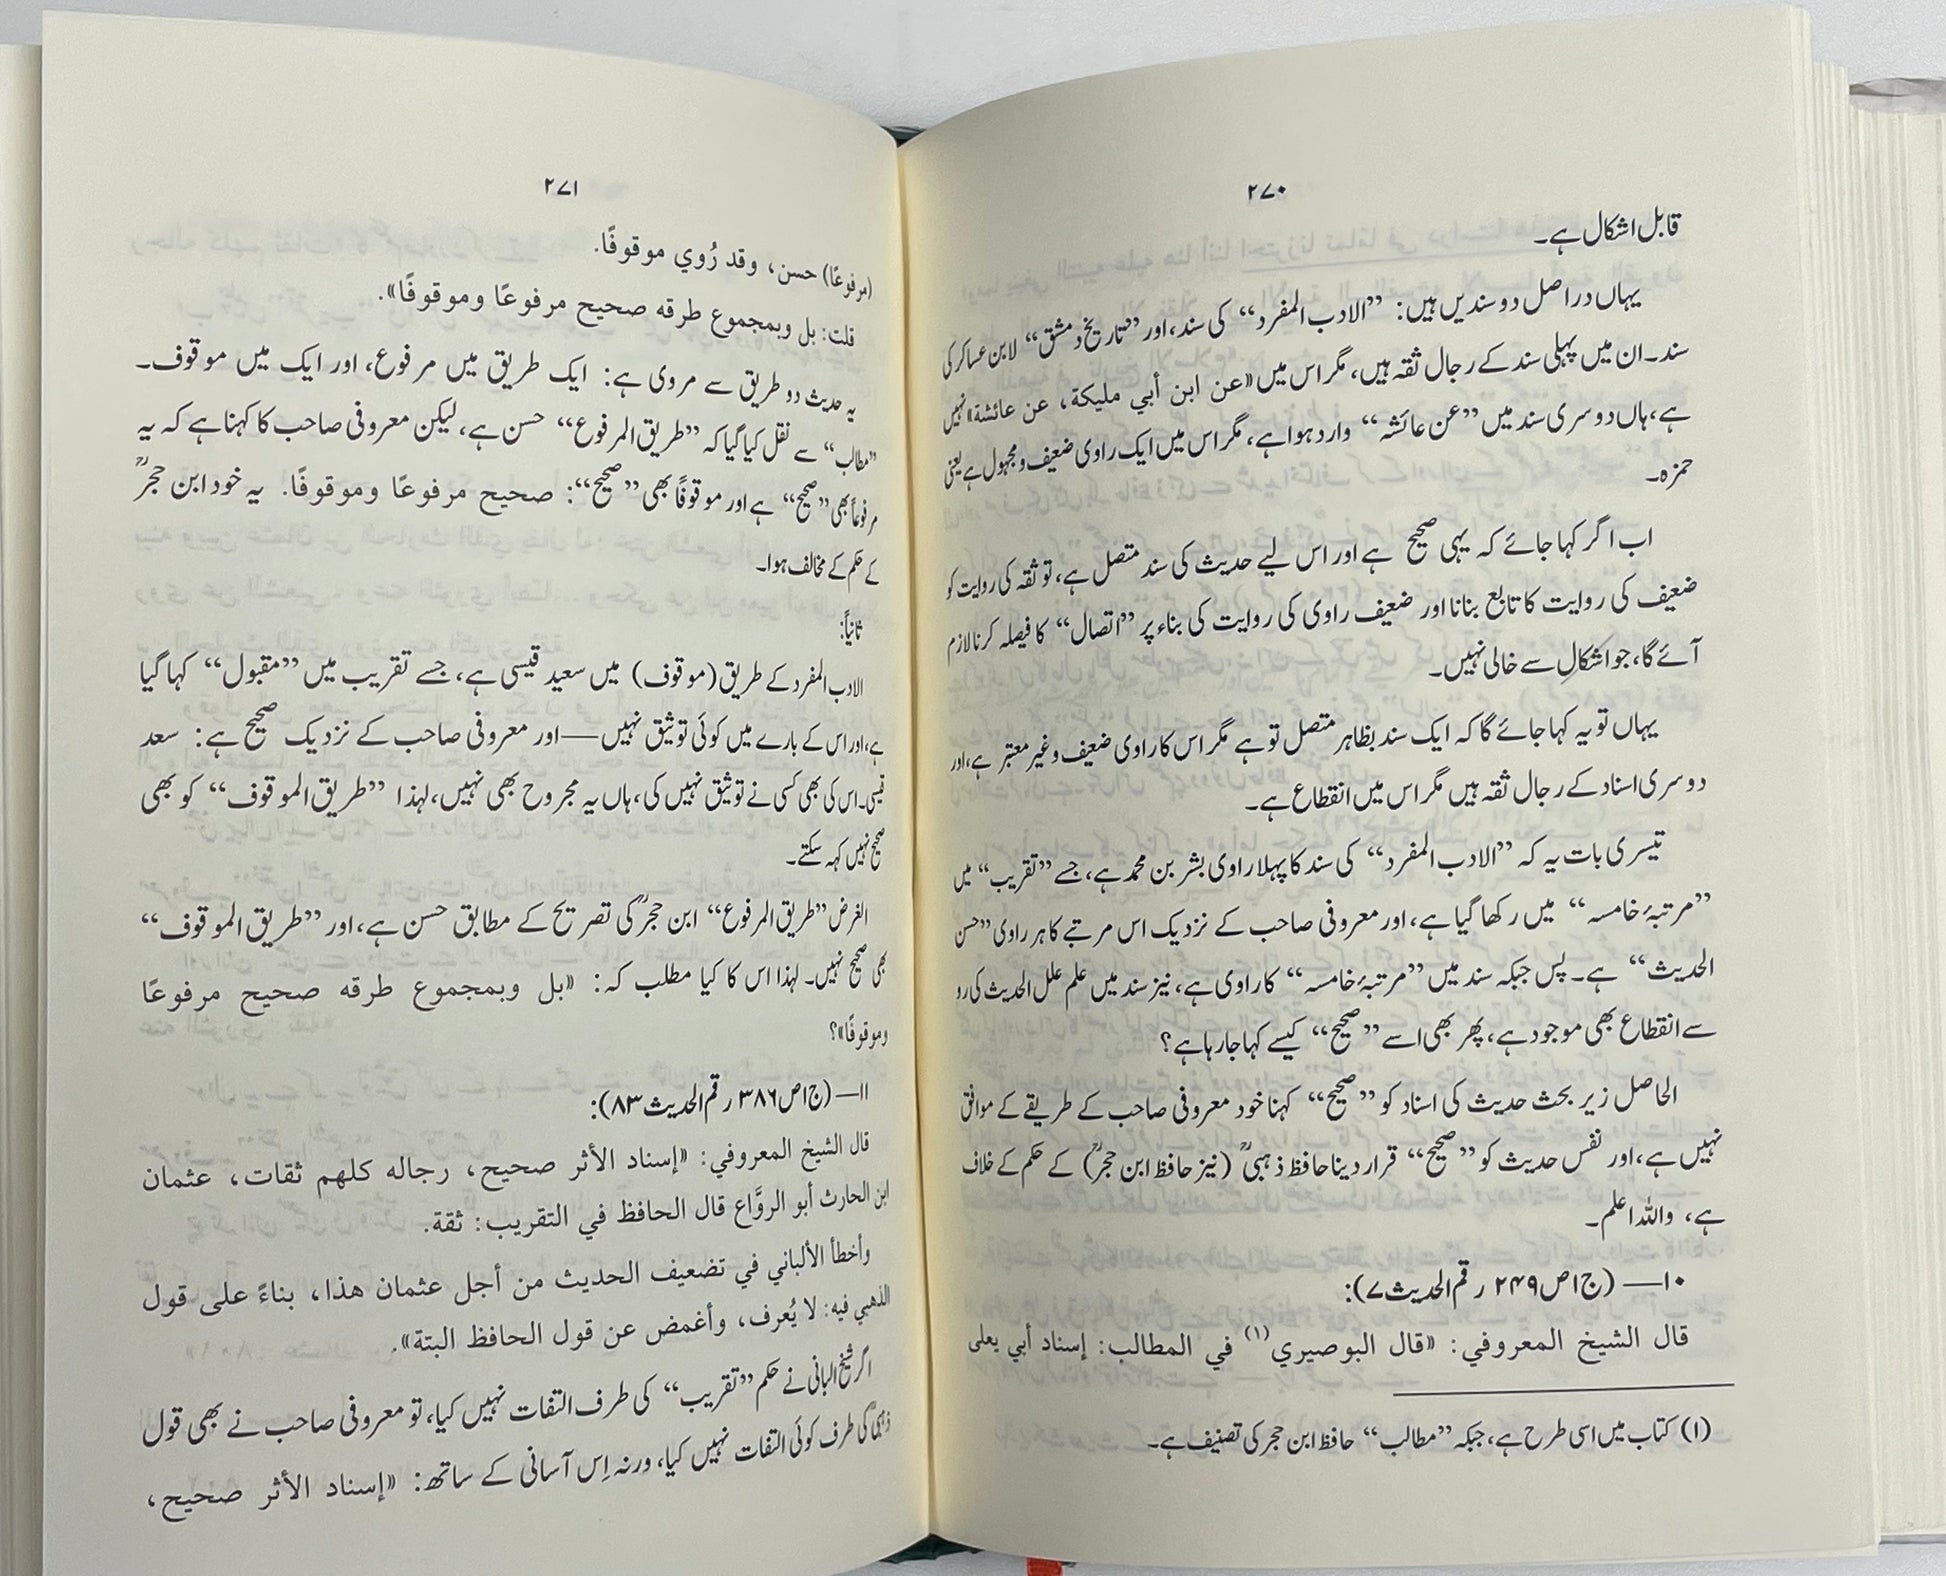 ۲۷۰
قابل اشکال ہے۔
یہاں دراصل دو سندیں ہیں: ”الادب المفرد“ کی سند، اور ”تاریخ دمشق“ لابن عساکر کی
سند۔ ان میں پہلی سند کے رجال ثقہ ہیں، مگر اس میں «عن ابن أبي مليكة، عن عائشة» نہیں
ہے، ہاں دوسری سند میں ”عن عائشہ“ وارد ہوا ہے، مگر اس میں ایک راوی ضعیف و مجہول ہے یعنی
حمزہ۔
اب اگر کہا جائے کہ یہی صحیح ہے اور اس لیے حدیث کی سند متصل ہے، تو ثقہ کی روایت کو
ضعیف کی روایت کا تابع بنانا اور ضعیف راوی کی روایت کی بناء پر ”اتصال“ کا فیصلہ کرنا لازم
آئے گا، جو اشکال سے خالی نہیں۔
یہاں تو یہ کہا جائے گا کہ ایک سند بظاہر متصل تو ہے مگر اس کا راوی ضعیف و غیر معتبر ہے، اور
دوسری اسناد کے رجال ثقہ ہیں مگر اس میں انقطاع ہے۔
تیسری بات یہ کہ ”الادب المفرد“ کی سند کا پہلا راوی بشر بن محمد ہے، جسے ”تقریب“ میں
”مرتبۂ خامسہ“ میں رکھا گیا ہے، اور معروفی صاحب کے نزدیک اس مرتبے کا ہر راوی ”حسن
الحدیث“ ہے۔ پس جبکہ سند میں ”مرتبۂ خامسہ“ کا راوی ہے، نیز سند میں علم علل الحدیث کی رو
سے انقطاع بھی موجود ہے، پھر بھی اسے ”صحیح“ کیسے کہا جا رہا ہے؟
الحاصل زیر بحث حدیث کی اسناد کو ”صحیح“ کہنا خود معروفی صاحب کے طریقے کے موافق
نہیں ہے، اور نفس حدیث کو ”صحیح“ قرار دینا حافظ ذہبیؒ (نیز حافظ ابن حجرؒ) کے حکم کے خلاف
ہے، واللہ اعلم۔
۱۰— (ج۱ص۲۴۹ رقم الحدیث۷):
قال الشيخ المعروفي: «قال البوصيري(۱) في المطالب: إسناد أبي يعلى
(۱) کتاب میں اسی طرح ہے، جبکہ ”مطالب“ حافظ ابن حجر کی تصنیف ہے۔
۲۷۱
(مرفوعًا) حسن، وقد رُوي موقوفًا.
قلت: بل وبمجموع طرقه صحيح مرفوعًا وموقوفًا».
یہ حدیث دو طریق سے مروی ہے: ایک طریق میں مرفوع، اور ایک میں موقوف۔
”مطالب“ سے نقل کیا گیا کہ ”طریق المرفوع“ حسن ہے، لیکن معروفی صاحب کا کہنا ہے کہ یہ
مرفوعاً بھی ”صحیح“ ہے اور موقوفًا بھی ”صحیح“: صحيح مرفوعًا وموقوفًا. یہ خود ابن حجرؒ
کے حکم کے مخالف ہوا۔
ثانیاً:
الادب المفرد کے طریق (موقوف) میں سعید قیسی ہے، جسے تقریب میں ”مقبول“ کہا گیا
ہے، اور اس کے بارے میں کوئی توثیق نہیں—اور معروفی صاحب کے نزدیک صحیح ہے: سعد
قیسی۔ اس کی بھی کسی نے توثیق نہیں کی، ہاں یہ مجروح بھی نہیں، لہذا ”طریق الموقوف“ کو بھی
صحیح نہیں کہہ سکتے۔
الغرض ”طریق المرفوع“ ابن حجرؒ کی تصریح کے مطابق حسن ہے، اور ”طریق الموقوف“
بھی صحیح نہیں۔ لہذا اس کا کیا مطلب کہ: «بل وبمجموع طرقه صحيح مرفوعًا
وموقوفًا»؟
۱۱— (ج۱ص۳۸۶ رقم الحدیث۸۳):
قال الشيخ المعروفي: «إسناد الأثر صحيح، رجاله كلهم ثقات، عثمان
ابن الحارث أبو الروَّاع قال الحافظ في التقريب: ثقة.
وأخطأ الألباني في تضعيف الحديث من أجل عثمان هذا، بناءً على قول
الذهبي فيه: لا يُعرف، وأغمض عن قول الحافظ البتة».
اگر شیخ البانی نے حکم ”تقریب“ کی طرف التفات نہیں کیا، تو معروفی صاحب نے بھی قول
ذہبی کی طرف کوئی التفات نہیں کیا، ورنہ اِس آسانی کے ساتھ: «إسناد الأثر صحيح،